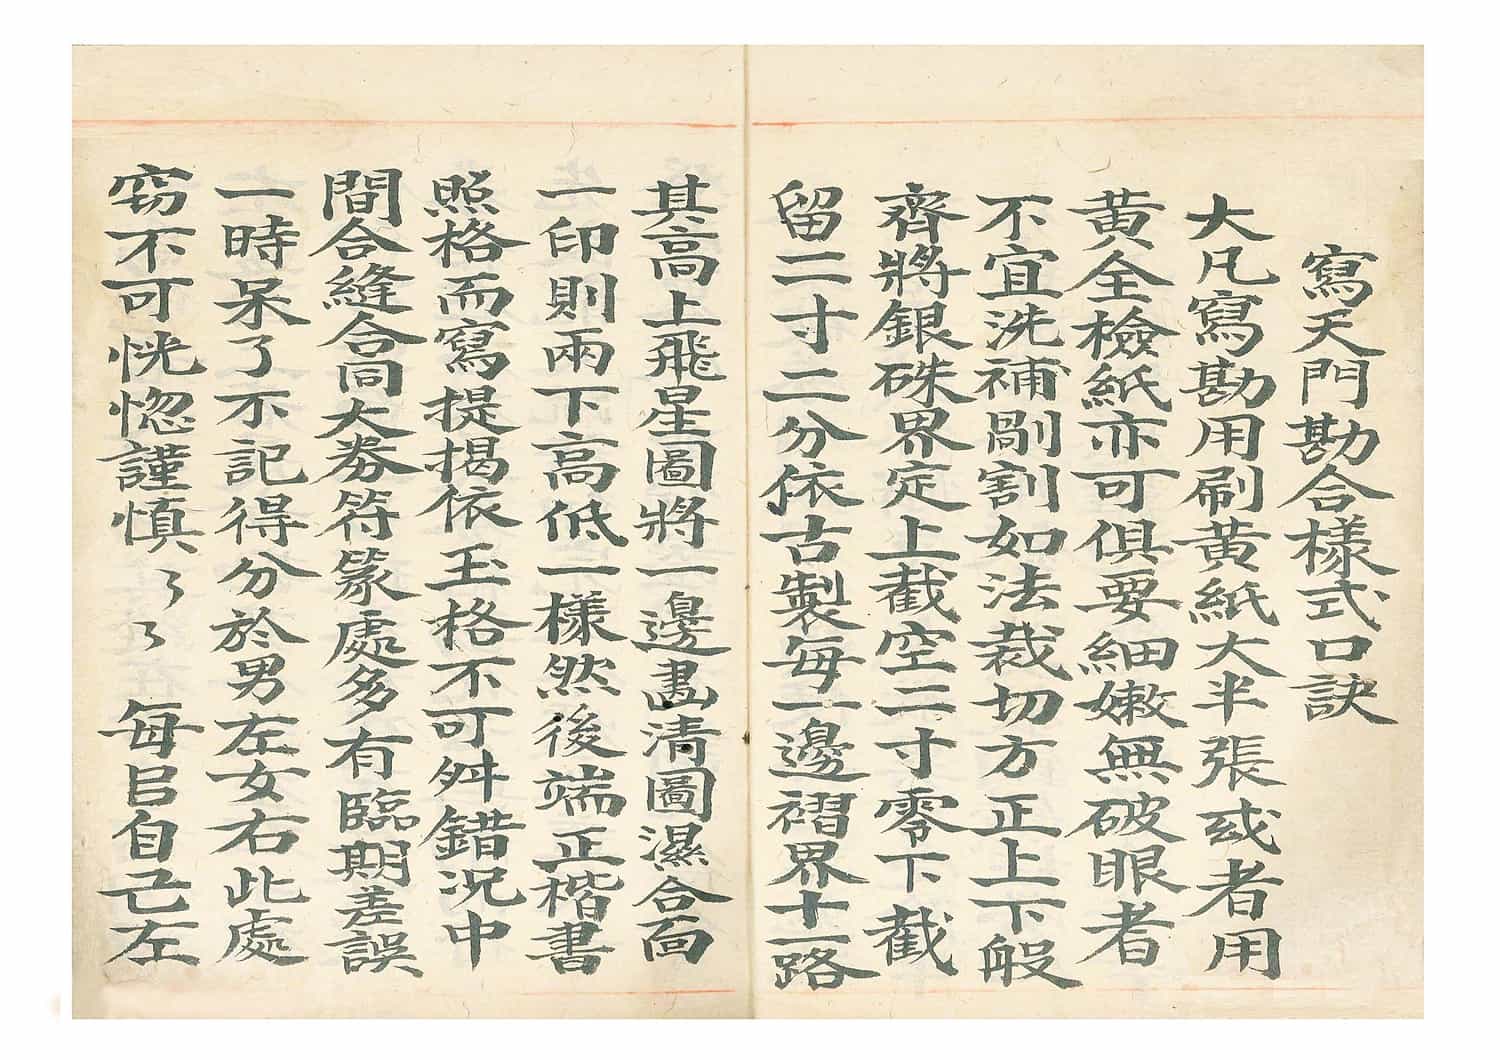 寫天門勘合樣式口訣
大凡寫勘用刷黃紙大半張或者用
黃全檢紙亦可俱要細嫩無破眼者
不宜洗補剮割如法裁切方正上下般
齊將銀硃界定上截空二寸零下截
留二寸二分依古製每一邊褶界十一路
其高上飛星圖將一邊畵清圖濕合面
一印則兩下高低一樣然後端正楷書
照格而寫提揭依玉格不可舛錯況中
間合縫合同大券符篆處多有臨期差誤
一時呆了不記得分於男左女右此處
窃不可恍惚謹慎々々 每㠯自己左